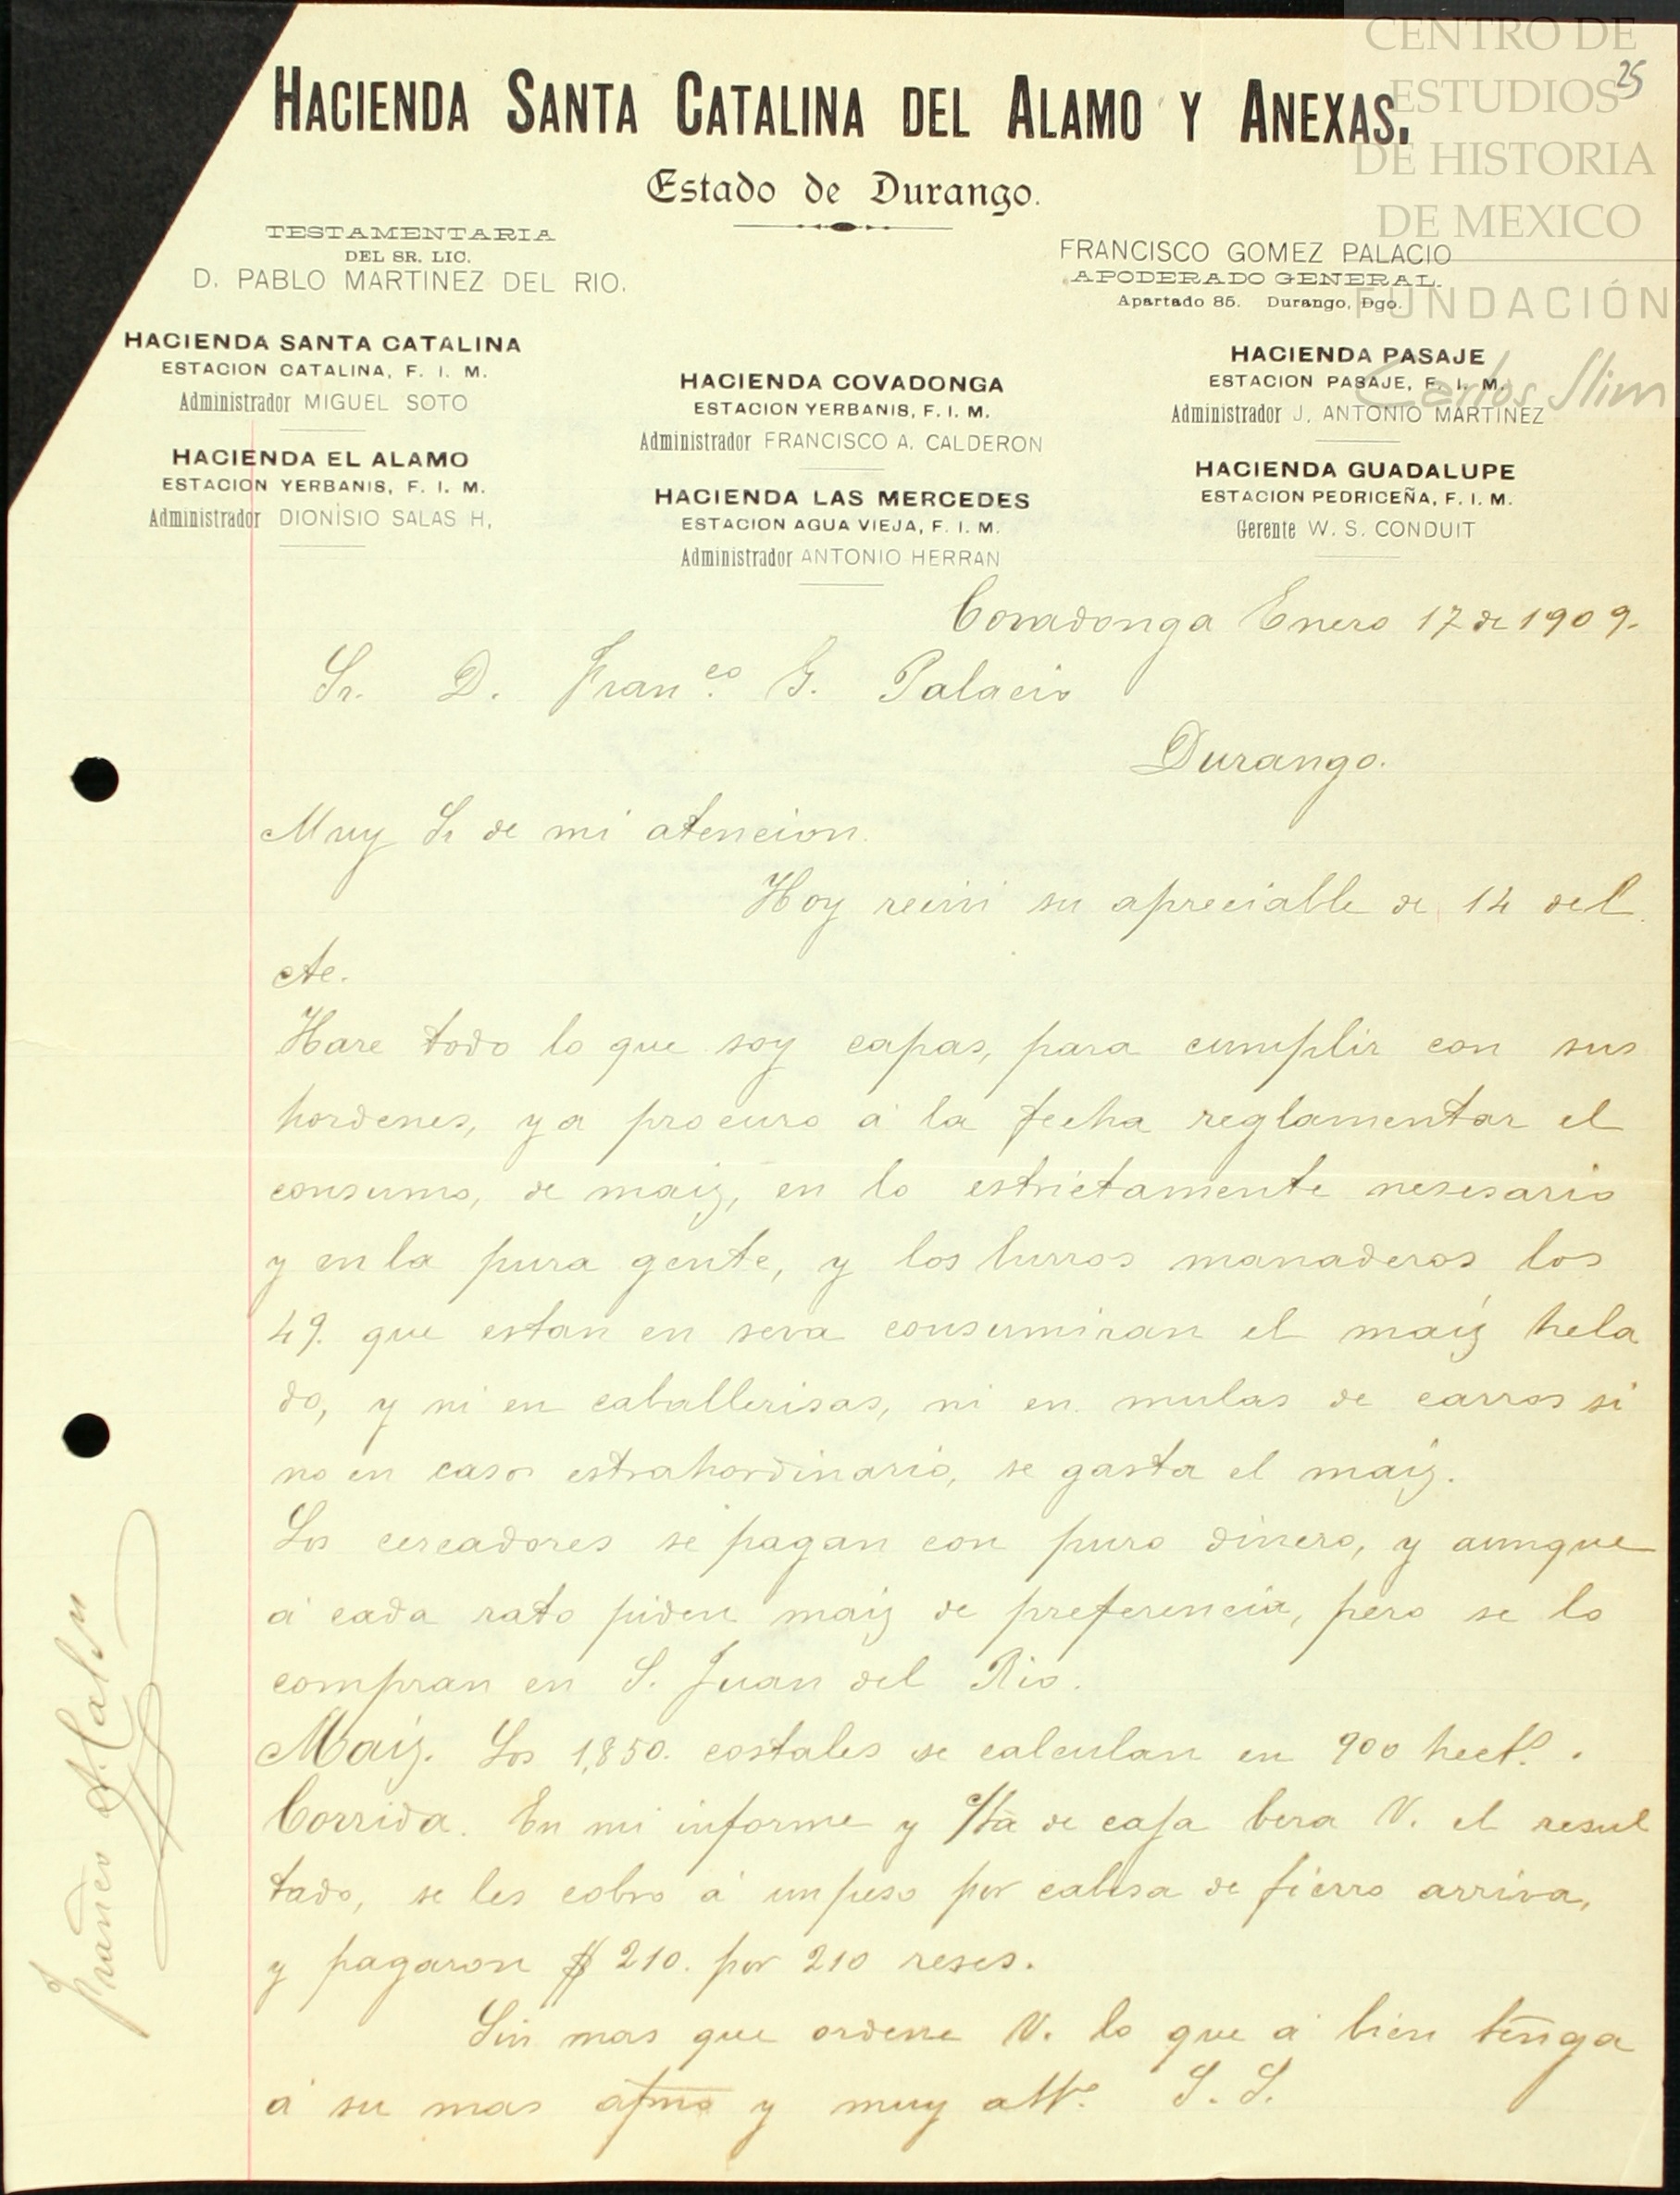 CENTRO DE
ESTUDIOS
DE HISTORIA
DE MEXICO
FUNDACIÓN
Carlos Slim
25
HACIENDA SANTA CATALINA DEL ALAMO Y ANEXAS.
Estado de Durango.
TESTAMENTARIA
DEL SR. LIC.
D. PABLO MARTINEZ DEL RIO.
FRANCISCO GOMEZ PALACIO
APODERADO GENERAL.
Apartado 85. Durango, Dgo.
HACIENDA SANTA CATALINA
ESTACION CATALINA, F. I. M.
Administrador MIGUEL SOTO
HACIENDA EL ALAMO
ESTACION YERBANIS, F. I. M.
Administrador DIONISIO SALAS H,
HACIENDA COVADONGA
ESTACION YERBANIS, F. I. M.
Administrador FRANCISCO A. CALDERON
HACIENDA LAS MERCEDES
ESTACION AGUA VIEJA, F. I. M.
Administrador ANTONIO HERRAN
HACIENDA PASAJE
ESTACION PASAJE, F. I. M.
Administrador J. ANTONIO MARTINEZ
HACIENDA GUADALUPE
ESTACION PEDRICEÑA, F. I. M.
Gerente W. S. CONDUIT
Covadonga Enero 17 de 1909.
Sr. D. Franco. G. Palacio
Durango.
Muy Sr de mi atencion.
Hoy reciví su apreciable de 14 del
cte.
Hare todo lo que soy capas, para cumplir con sus
hordenes, ya procuro á la fecha reglamentar el
consumo, de maiz, en lo estrictamente nesesario
y en la pura gente, y los burros manaderos los
49. que estan en seva consumiran el maiz hela
do, y ni en caballerisas, ni en mulas de carros si
no en casos estrahordinario, se gasta el maiz.
Los cercadores se pagan con puro dinero, y aunque
á cada rato piden maiz de preferencia, pero se lo
compran en S. Juan del Rio.
Maiz. Los 1,850. costales se calculan en 900 hect.s.
Corrida. En mi informe y c/ta de caja bera V. el resul
tado, se les cobro á un peso por cabesa de fierro arriva,
y pagaron $210. por 210 reses.
Sin mas que ordene V. lo que á bien tenga
á su mas afmo y muy atto. S. S.
Franco A. Caldn